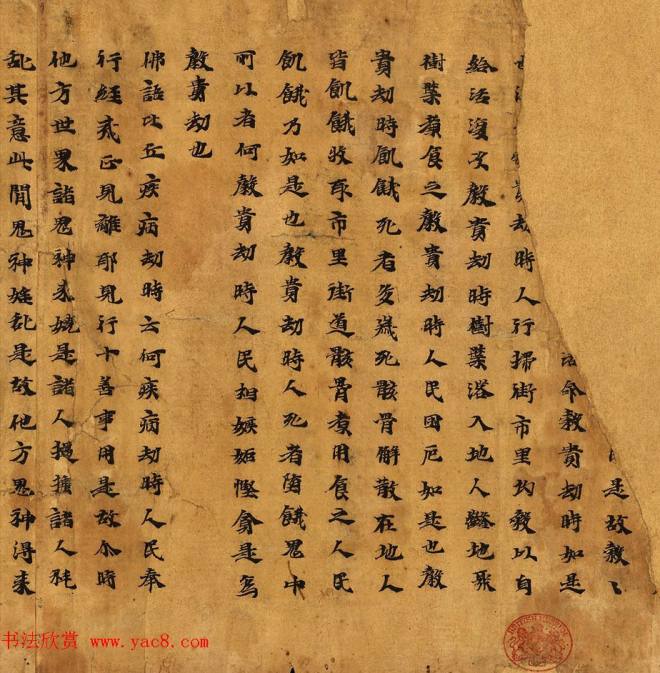 是故穀
活命穀貴劫時如是
劫時人行掃街市里以自
給活復次穀貴劫時樹葉落入地人鑿地取
樹葉煮食之穀貴劫時人民困厄如是也穀
貴劫時飢餓死者死骸骨解散在地人
皆飢餓收取市里街道骸骨煮用食之人民
飢餓乃如是也穀貴劫時人死者堕餓鬼中
可以者何穀貴劫時人民相嫉妬慳貪是為
穀貴劫也
佛語比丘疾病劫時云何疾病劫時人民奉
行經戒正見離耶見行十善事用是故尒時
他方世界諸鬼神来嬈是諸人撾捶諸人秏
乱其意此間鬼神婬乱是故他方鬼神得来
书法欣赏 www.yac8.com